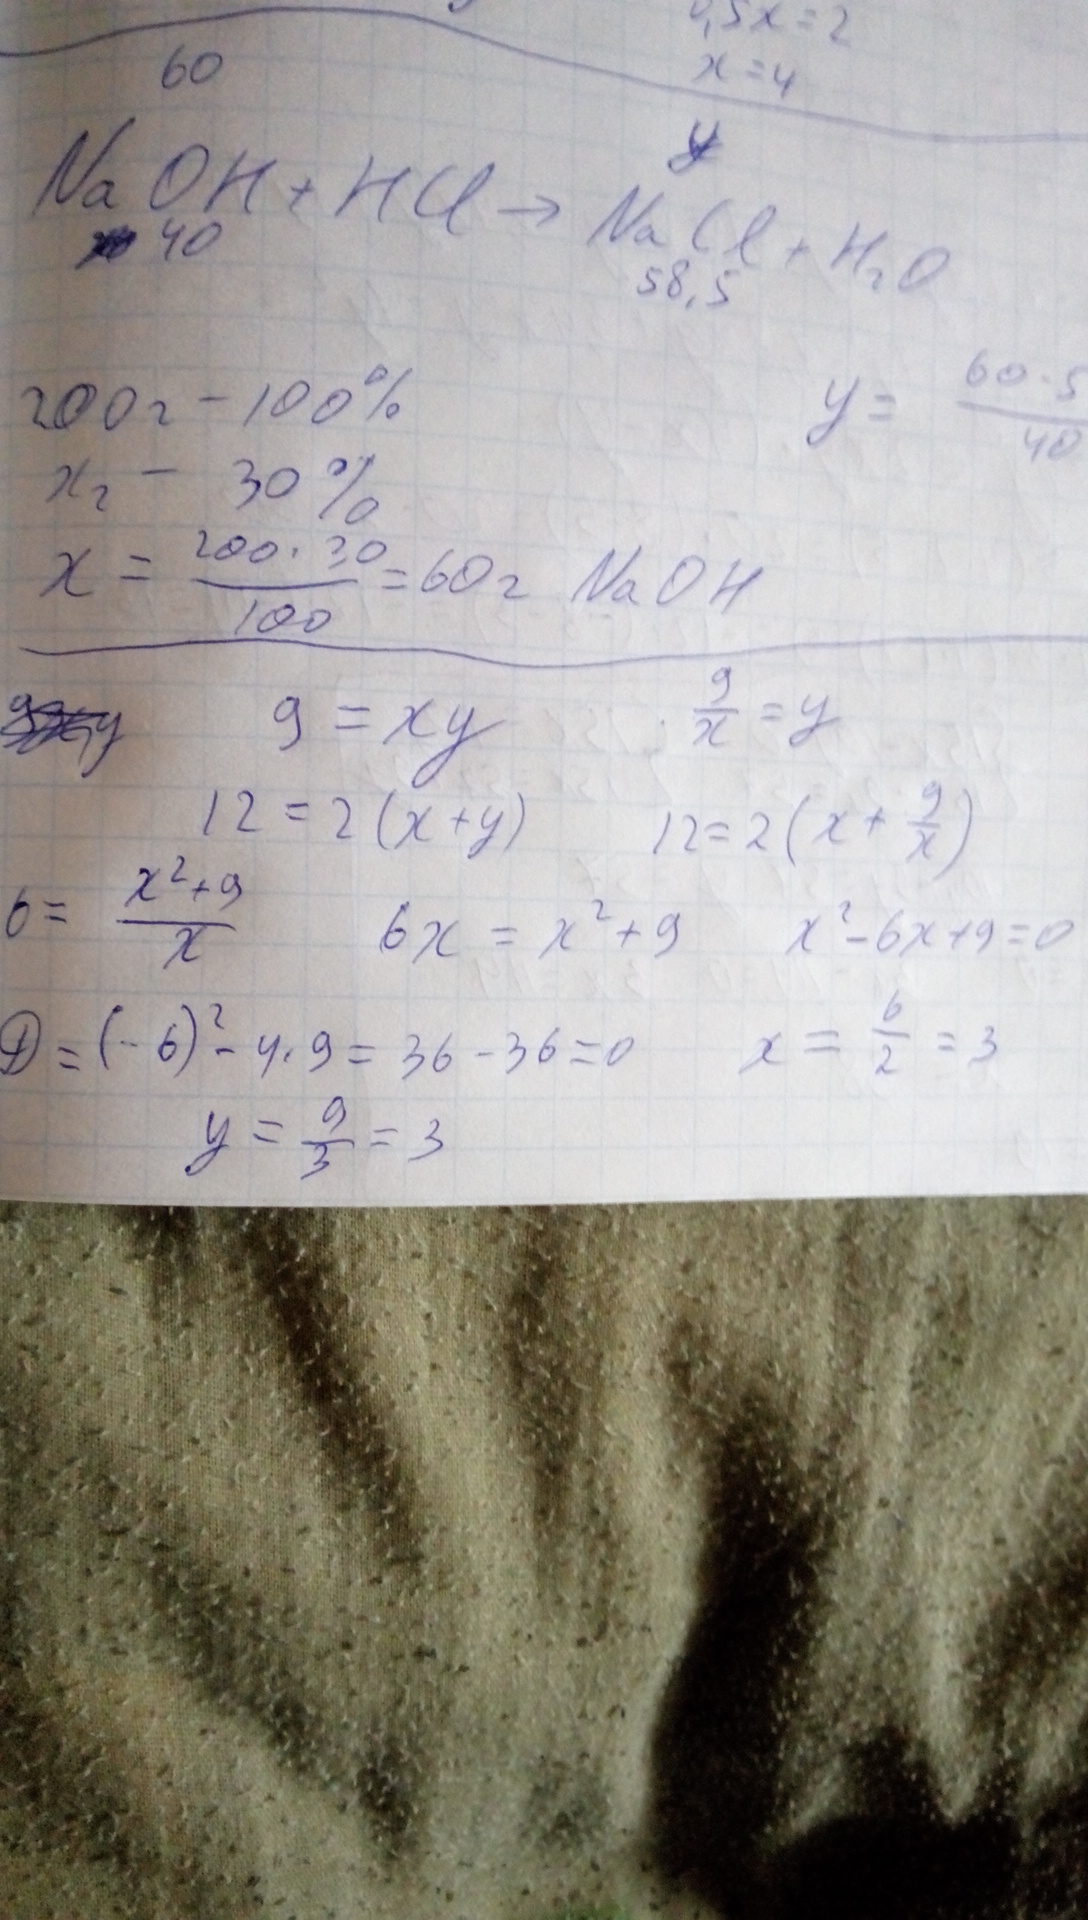 0,5x=2
x=4
60 y
NaOH + HCl → NaCl + H₂O
40 58,5
200г - 100%
xг - 30%
y = 60·5 / 40
x = 200·30 / 100 = 60г NaOH
9 = xy 9/x = y
12 = 2(x+y) 12 = 2(x + 9/x)
6 = x²+9 / x 6x = x²+9 x²-6x+9=0
D = (-6)² - 4·9 = 36-36=0 x = 6/2 = 3
y = 9/3 = 3